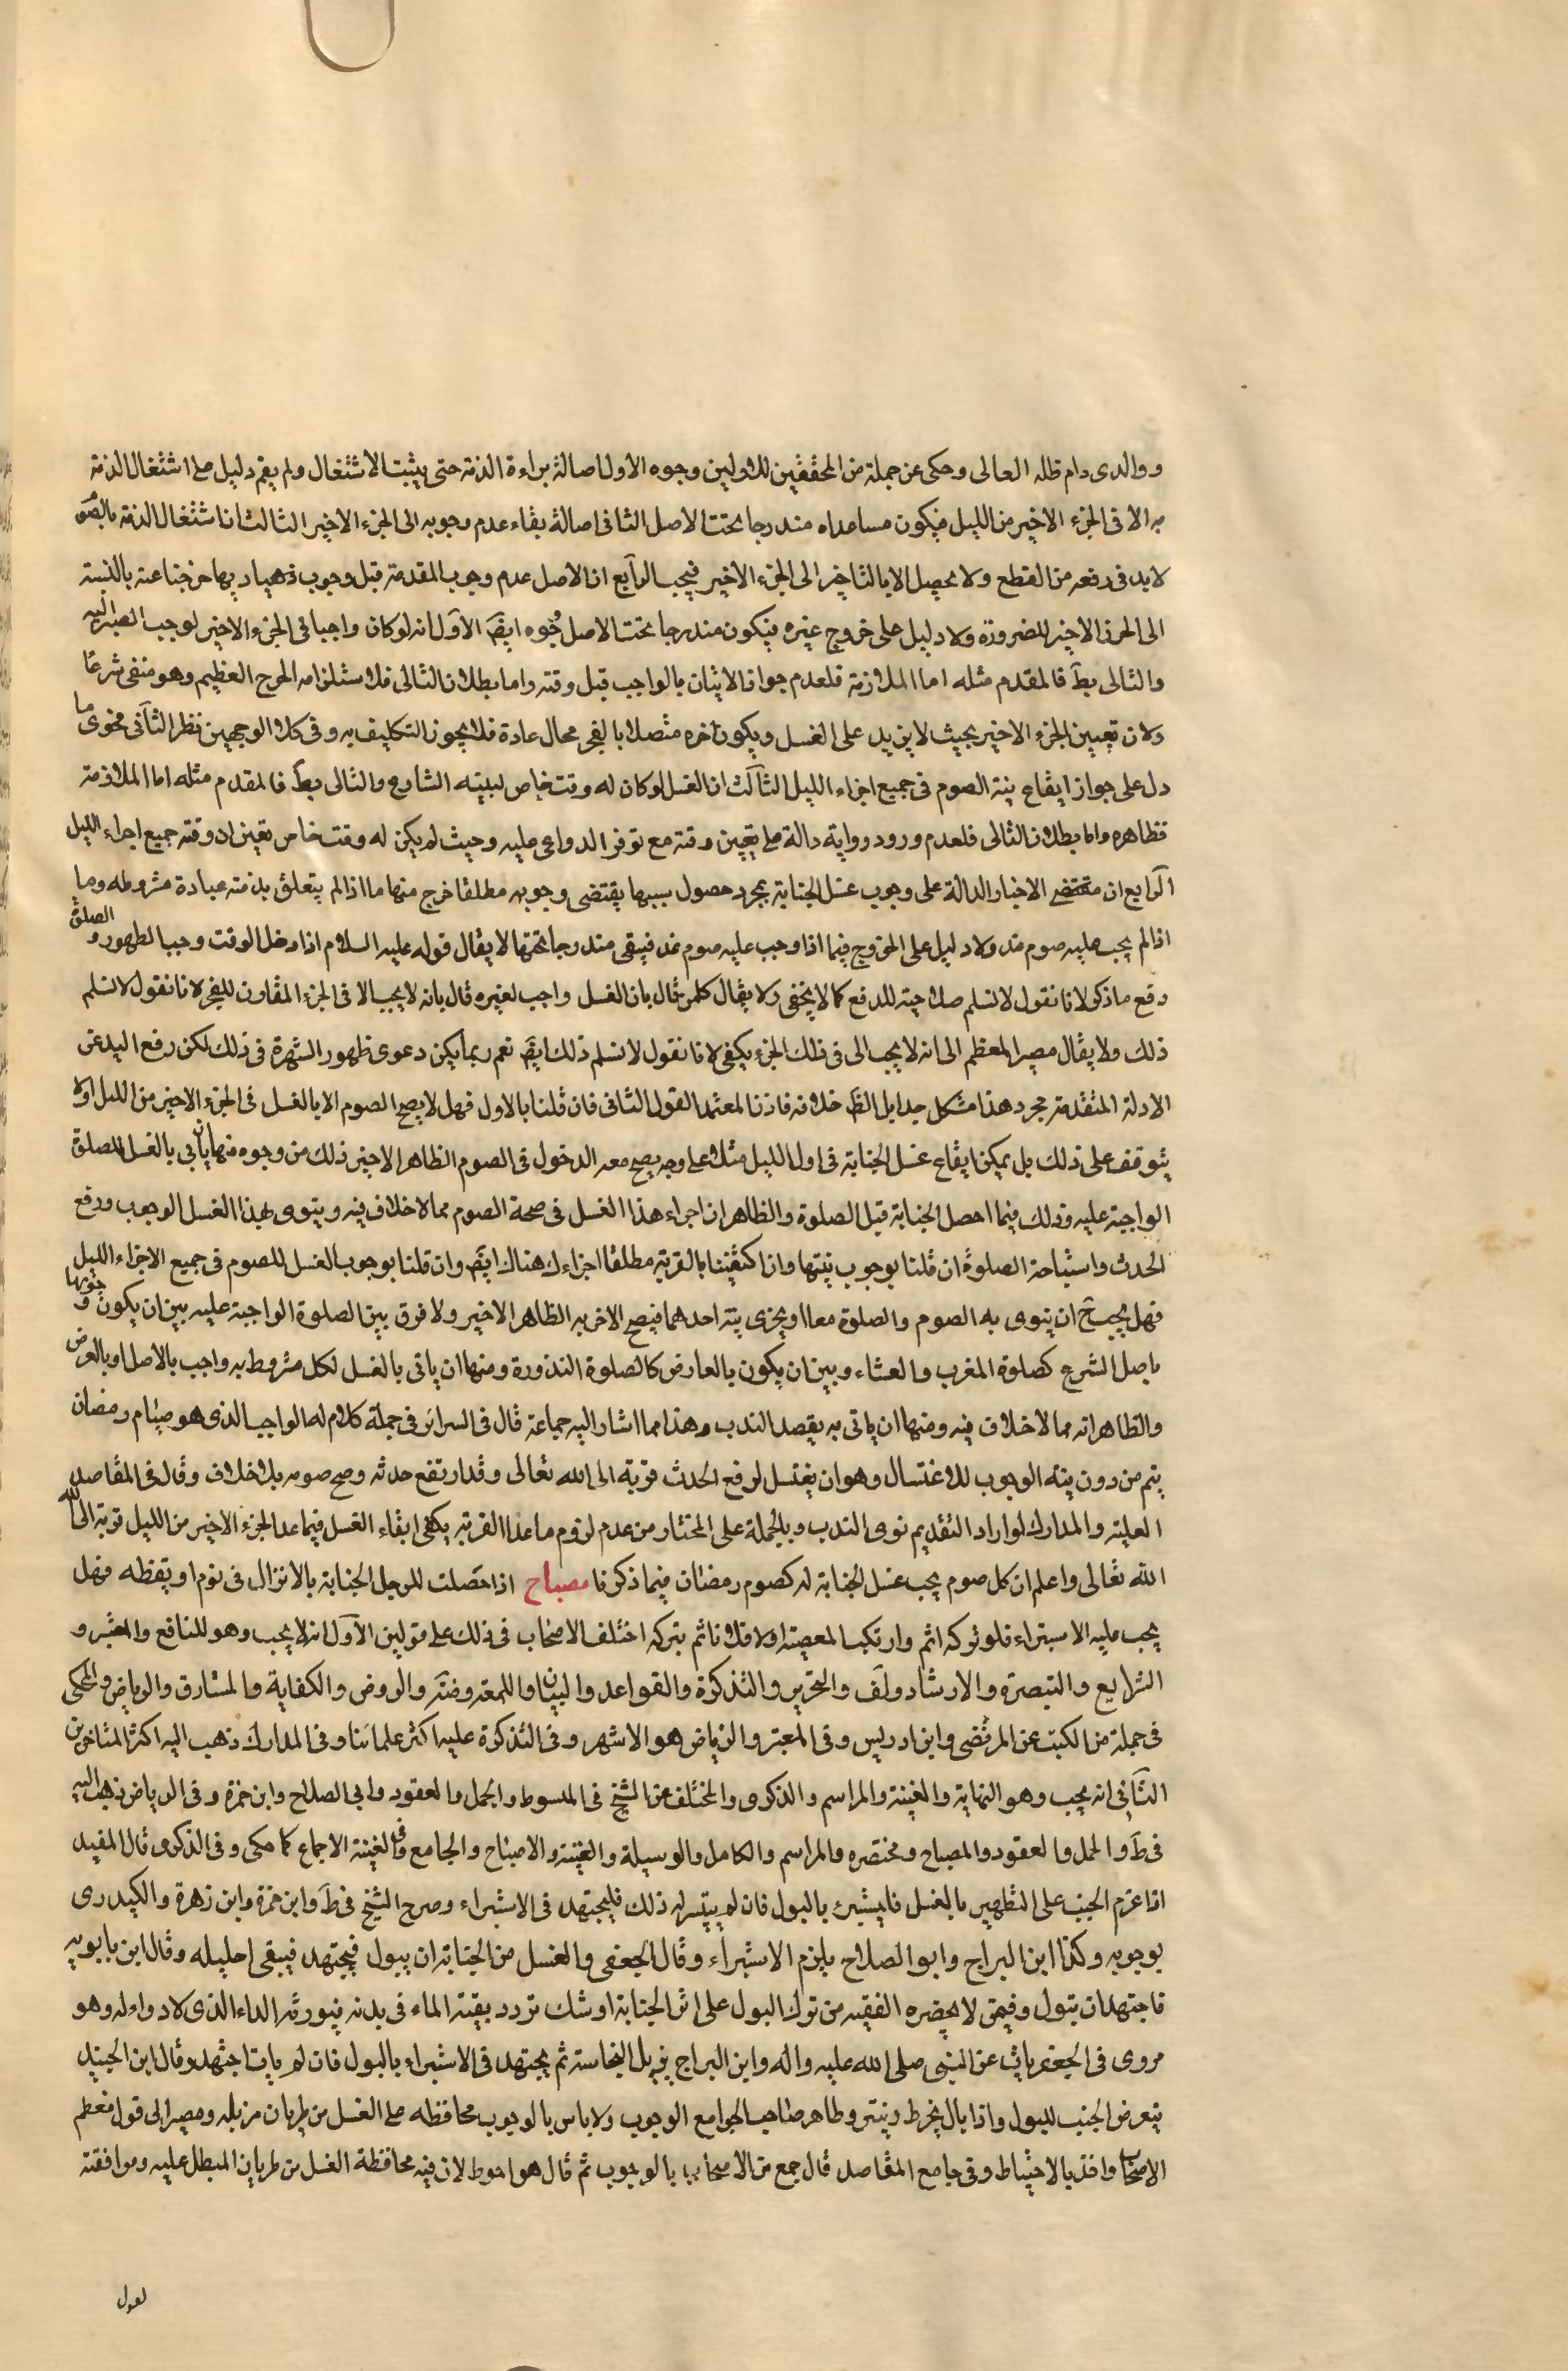 ووالدى دام ظله العالى وحكى عن جملة من المحققين للاولين وجوه الاول اصالة براءة الذمة حتى يثبت الاشتغال ولم يقم دليل على اشتغال الذمة
به الا فى الجزء الاخير من الليل فيكون مساعداه مندرجا تحت الاصل الثانى اصالة بقاء عدم وجوبه الى الجزء الاخير الثالث ان اشتغال الذمة بالصوم
لابد فى رفعه من القطع ولا يحصل الا بالتاخير الى الجزء الاخير فيجب الرابع ان الاصل عدم وجوب المقدمة قبل وجوب ذيها خرج جناعته بالنسبة
الى الجزء الاخير للضرورة ولا دليل على خروج غيره فيكون مندرجا تحت الاصل وجوه ايضَ الاوّل انه لو كان واجبا فى الجزء الاخير لوجب الصبر اليه
والتالى بطَ فالمقدم مثله اما الملازمة فلعدم جواز الاتيان بالواجب قبل وقته واما بطلان التالى فلاستلزامه الحرج العظيم وهو منفى شرعًا
ولان تعيين الجزء الاخير بحيث لا يزيد على الغسل ويكون اخره متصلا بالفجر محال عادة فلا يجوز التكليف به وفى كلا الوجهين نظر الثآنى فحوى ما
دل على جواز ايقاع نية الصوم فى جميع اجزاء الليل الثآلث ان الغسل لو كان له وقت خاص لبينه الشارع والتالى بطَ فالمقدم مثله اما الملازمة
فظاهره واما بطلان التالى فلعدم ورود رواية دالة على تعيين وقته مع توفر الدواعى عليه وحيث لم يكن له وقت خاص تعين ان وقته جميع اجزاء الليل
الرّابع ان مقتضى الاخبار الدالة على وجوب غسل الجنابة بمجرد حصول سببها يقتضى وجوبه مطلقا خرج منها ما اذا لم يتعلق بذمته عبادة مشروطه وما
اذا لم يجب عليه صوم غد ولا دليل على الخروج فيما اذا وجب عليه صوم غد فيبقى مندرجا تحتها لا يقال قوله عليه السلام اذا دخل الوقت وجب الطهور والصلوة
دفع ما ذكر لانا نقول لا نسلم صلاحيته للدفع كما لا يخفى ولا يقال كل من قال بان الغسل واجب لغيره قال بانه لا يجب الا فى الجزء المقارن للفجر لانا نقول لا نسلم
ذلك ولا يقال مصير المعظم الى انه لا يجب الى فى ذلك الجزء يكفى لانا نقول لا نسلم ذلك ايضَ نعم ربما يمكن دعوى ظهور الشهرة فى ذلك لكن رفع اليد عن
الادلة المتقدمة بمجرد هذا مشكل جدا بل الظَ خلافه فاذن المعتمد القول الثانى فان قلنا بالاول فهل لا يصح الصوم الا بالغسل فى الجزء الاخير من الليل اولا
يتوقف على ذلك بل يمكن ايقاع غسل الجنابة فى اول الليل مثلا على وجه يصح معه الدخول فى الصوم الظاهر الاخير ذلك من وجوه منها ان ياتى بالغسل للصلوة
الواجبة عليه وذلك فيما احصل الجنابة قبل الصلوة والظاهر ان اجزاء هذا الغسل فى صحة الصوم مما لا خلاف فيه وينوى لهذا الغسل الوجوب ورفع
الحدث واستباحة الصلوة ان قلنا بوجوب نيتها وان اكتفينا بالقربة مطلقا اجزاءك هناك ايضَ وان قلنا بوجوب الغسل للصوم فى جميع الاجزاء الليل
فهل يجب حَ ان ينوى به الصوم والصلوة معا او يجزى نية احدهما فيصح الاخر به الظاهر الاخير ولا فرق بين الصلوة الواجبة عليه بين ان يكون وجوبها
باصل الشرع كصلوة المغرب والعشاء وبين ان يكون بالعارض كالصلوة النذورة ومنها ان ياتى بالغسل لكل مشروط به واجب بالاصل او بالعرض
والظاهر انه مما لا خلاف فيه ومنها ان ياتى به بقصد الندب وهذا مما اشار اليه جماعة قال فى السرائر فى جملة كلام له الواجب الذى هو صيام رمضان
يتم من دون نية الوجوب للاغتسال وهو ان يغتسل لرفع الحدث قربة الى الله تعالى وقد ارتفع حدثه وصح صومه بلا خلاف وقال فى المقاصد
العلية والمدارك لو اراد التقديم نوى الندب وبالجملة على المختار من عدم لزوم ما عدا القربة يكفى ايقاء الغسل فيما عدا الجزء الاخير من الليل قربة الى الله
الله تعالى واعلم ان كل صوم يجب غسل الجنابة له كصوم رمضان فيما ذكرنا مصباح اذا حصلت للرجل الجنابة بالانزال فى نوم او يقظه فهل
يجب عليه الاستبراء فلو تركه اثم وارتكب المعصية اولا فلا ياثم بتركه اختلف الاصحاب فى ذلك على قولين الاوّل انه لا يجب وهو للنافع والمعتبر و
الشرايع والتبصرة والارشاد ولَف والتحرير والتذكرة والقواعد والبيان واللمعة وضَه والروض والكفاية والمشارق والرياض والمحكى
فى جملة من الكتب عن المرتضى وابن ادريس وفى المعتبر والرياض هو الاشهر وفى التذكرة عليه اكثر علمائنا وفى المدارك ذهب اليه اكثر المتاخرين
الثآنى انه يجب وهو النهاية والغنية والمراسم والذكرى والمختلف عن الشيخ فى المبسوط والجمل والعقود وابى الصلاح وابن حمزة وفى الرياض ذهب اليه
فى طَ والجمل والعقود والمصباح ومختصره والمراسم والكامل والوسيلة والغنية والاصباح والجامع وفى الغنية الاجماع كما حكى وفى الذكرى قال المفيد
اذا عزم الجنب على التطهير بالغسل فليستبرئ بالبول فان لم يتيسر له ذلك فليجتهد فى الاستبراء وصرح الشيخ فى طَ وابن حمزة وابن زهرة والكيدرى
بوجوبه وكذا ابن البراج وابو الصلاح يلزم الاستبراء وقال الجعفى والغسل من الجنابة ان يبول فيجتهد فيبقى احليله وقال ابن بابويه
فاجتهد ان تبول وفيمن لا يحضره الفقيه من ترك البول على اثر الجنابة اوشك تردد بقية الماء فى بدنه فيورثه الداء الذى لا دواء له وهو
مروى فى الجعفريات عن النبى صلى الله عليه واله وابن البراج يزيل النجاسة ثم يجتهد فى الاستبراء بالبول فان لم يات اجتهد وقال ابن الجنيد
يتعرض الجنب للبول واذا بال يخرط وينتر وظاهر صاحب الجوامع الوجوب ولا باس بالوجوب محافظه على الغسل من طريان مزيله ومصيرا الى قول معظم
الاصحاب واخذ بالاحتياط وفى جامع المقاصد قال جمع من الاصحاب بالوجوب ثم قال هو احوط لان فيه محافظة الغسل من طريان المبطل عليه وموافقته
لقول